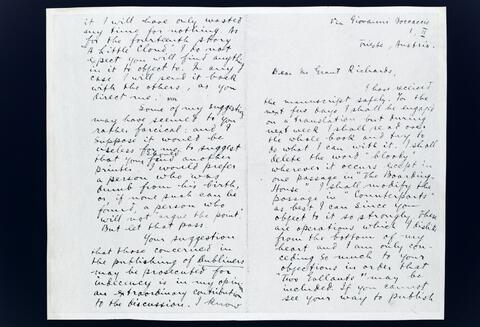 Via Giovanni Boccaccio
1, II
Trieste, Austria.
Dear Mr Grant Richards,
I have received
the manuscript safely. For the
next few days I shall be engaged
on a translation but during
next week I shall read over
the whole book and try to
do what I can with it. I shall
delete the word 'bloody'
wherever it occurs except in
one passage in "The Boarding
House". I shall modify the
passage in "Counterparts"
as best I can since you
object to it so strongly. These
are operations which I dislike
from the bottom of my
heart and I am only con-
ceding so much to your
objections in order that
"Two Gallants" may be
included. If you cannot
see your way to publish
it I will have only wasted
my time for nothing. As
for the fourteenth story
"A Little Cloud" I do not
expect you will find anything
in it to object to. In any
case I will send it back
with the others, as you
direct me.
Some of my suggestions
may have seemed to you
rather farcical: and I
suppose it would be
useless for me to suggest
that you find another
printer. I would prefer
a person who was
dumb from his birth,
or, if none such can be
found, a person who
will not 'argue the point'.
But let that pass.
Your suggestion
that those concerned in
the publishing of Dubliners
may be prosecuted for
indecency is in my opinion
an extraordinary contribution
to the discussion. I know